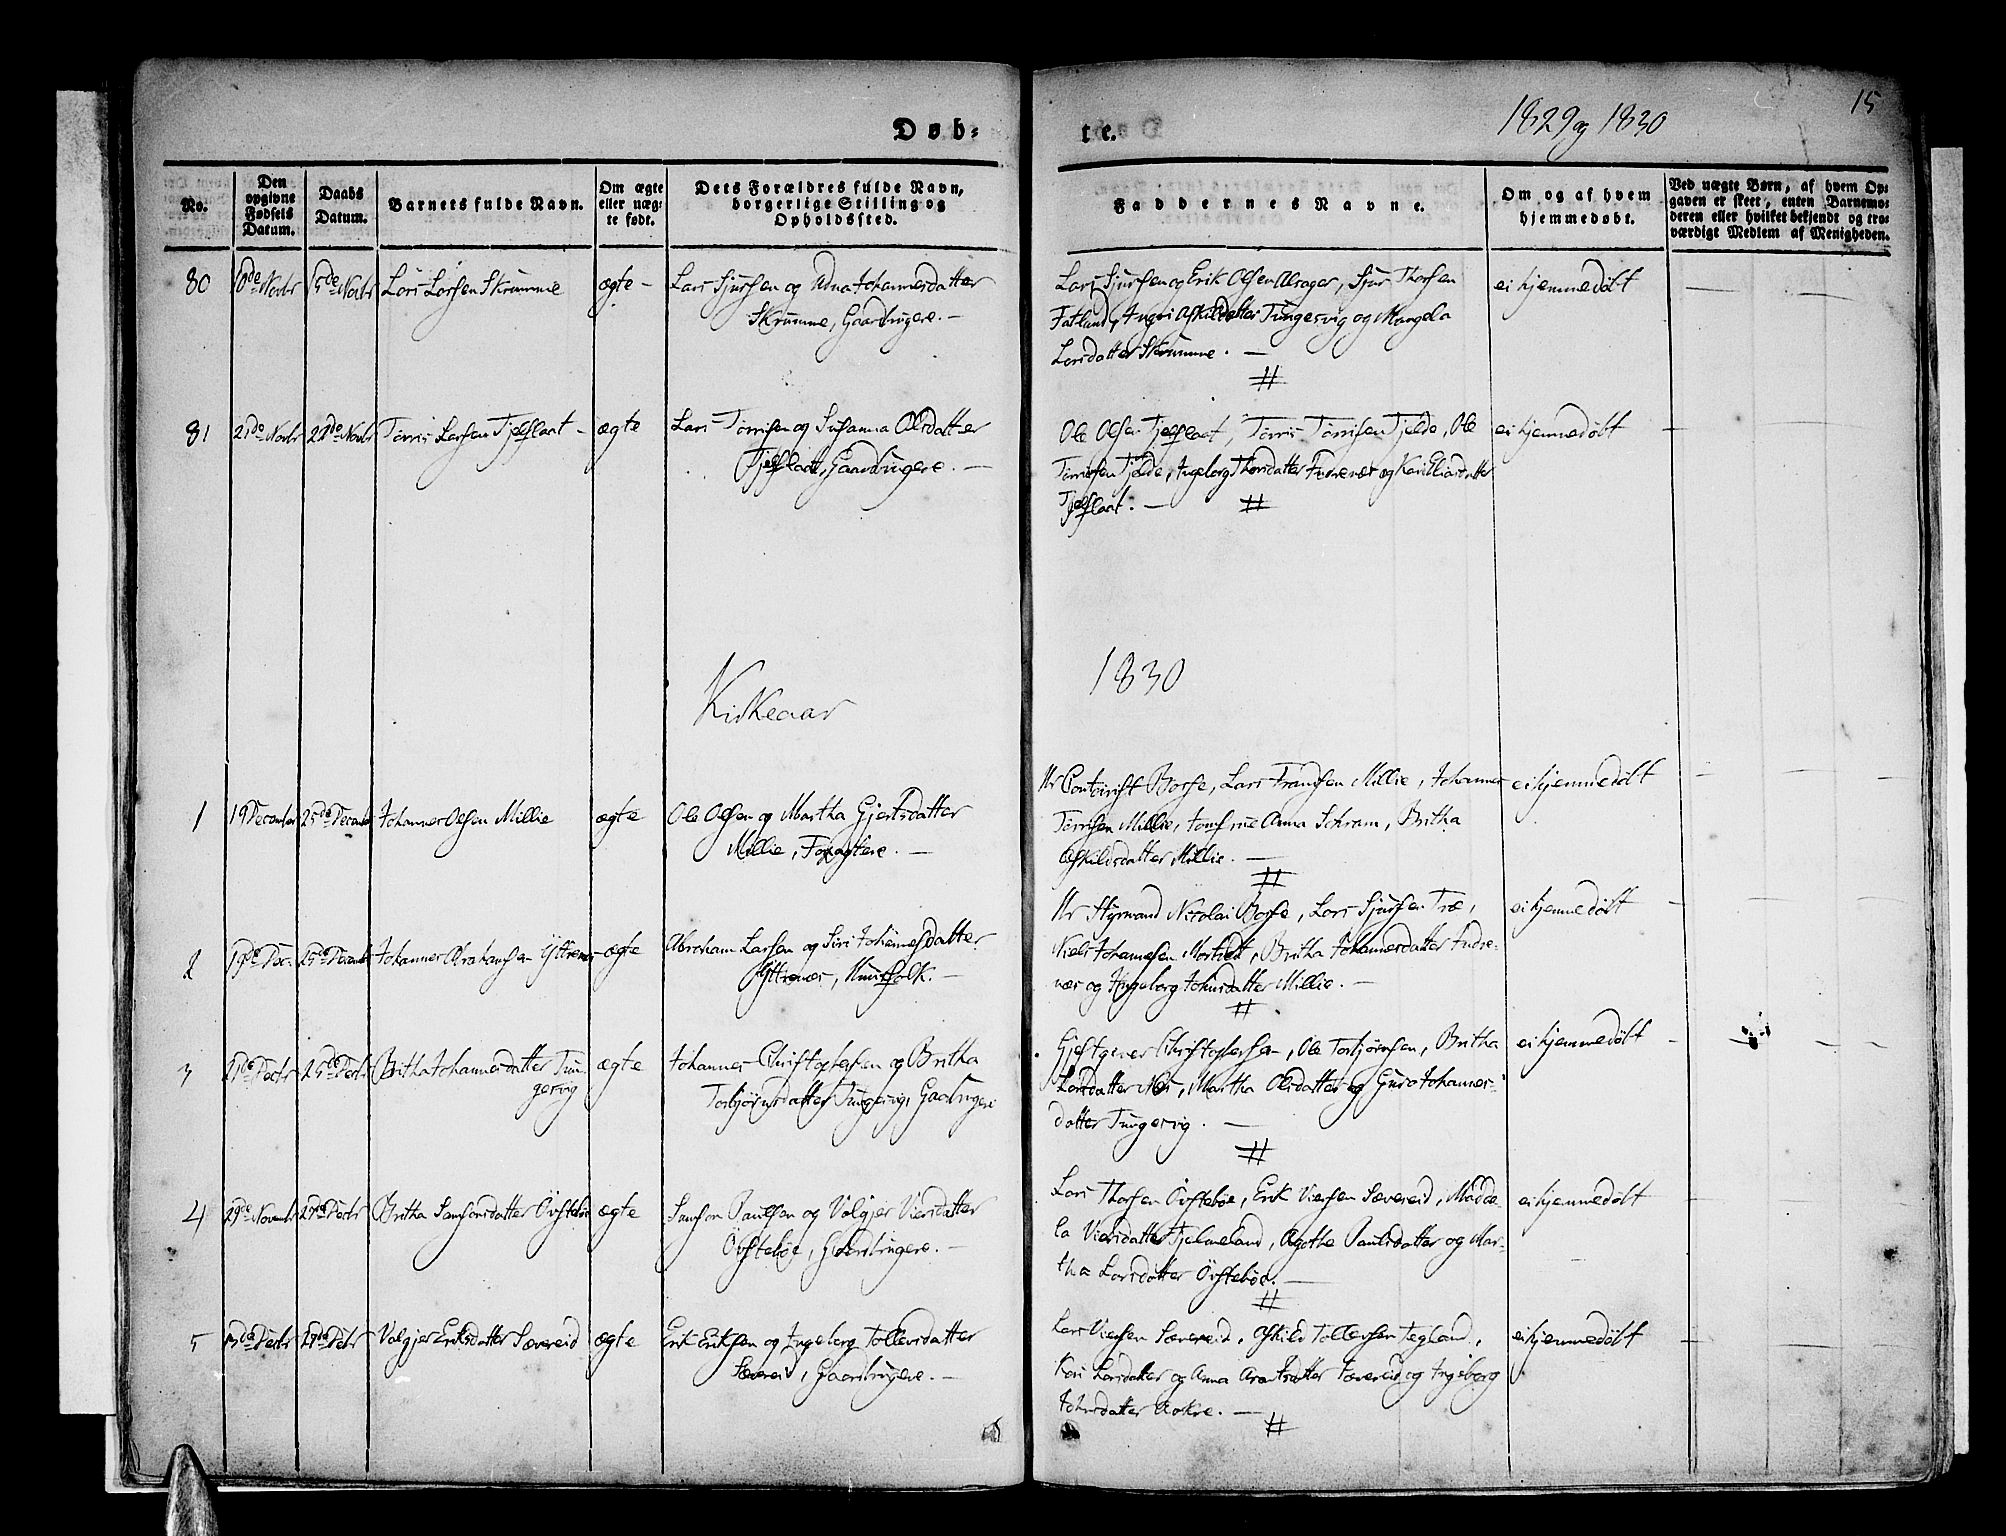 15
1829 og 1830
Døb-
te.
No.
Den opgivne Fødsels Datum.
Daabs Datum.
Barnets fulde Navn.
Om ægte eller uægte født.
Dets Forældres fulde Navn, borgerlige Stilling og Opholdssted.
Faddernes Navne.
Om og af hvem hjemmedøbt.
Ved uægte Børn, af hvem Opgaven er skeet, enten Barnemoderen eller hvilket bekjendt og troværdigt Medlem af Menigheden.
80
10de Novbr
15de Novbr
Lars Larsen Skrumme
ægte -
Lars Sjursen og Adna Johannesdatter
Skrumme, Gaardbrugere. -
Lars Sjursen og Erik Olsen Alsager, Sjur Thorsen
Fatland, Ingri Askildsdatter Tungesvig og Mangela
Larsdatter Skrumme. -
ei hjemmedøbt
81
21de Novbr
22de Novbr
Tørris Larsen Fjelflaat -
ægte
Lars Tørrisen og Susanna Olsdatter
Fjelflaat, Gaardbrugere. -
Ole Olsen Fjelflaat, Tørris Tørrisen Tjelde, Ole
Tørrisen Tjelde, Ingeborg Thorsdatter Indrenæs og Kari Eliasdatter
Fjelflaat. -
ei hjemmedøbt
Kirkeaar
1830
1
19 December
25de December
Johannes Olsen Millie
ægte
Ole Olsen og Martha Gjertsdatter
Millie, Forpagtere. -
Hr Contoirist Borse, Lars Frandsen Millie, Johannes
Tørrisen Millie, Jomfrue Anna Schram, Britha
Askildsdatter Millie. -
ei hjemmedøbt
2
19de Dec.
25de December
Johannes Abrahamsen Yttrenæs
ægte
Abraham Larsen og Siri Johannesdatter
Yttrenæs, Huusfolk. -
Hr Styrmand Nicolai Borse, Lars Sjursen Træ,
Niels Johannesen Mortvedt, Britha Johannesdatter Indre-
næs og Ingeborg Johnsdatter Millie. -
ei hjemmedøbt
3
21de Decbr
25de Decbr
Britha Johannesdatter Tun-
gesvig
ægte
Johannes Christophersen og Britha
Torbjørnsdatter Tungesvig, Gaardbrugere
Gjestgiver Christophersen, Ole Torbjørnsen, Britha
Larsdatter Næs, Martha Olsdatter og Guro Johannes-
datter Tungesvig. -
ei hjemmedøbt
4
29de Novembr
27de Decbr
Britha Samsonsdatter Övstebøe
ægte
Samson Paulsen og Valgjer Viersdatter
Övstebøe, Gaardbrugere. -
Lars Thorsen Övstebøe, Erik Viersen Sævereid, Madda-
la Viersdatter Fjelmeland, Agathe Paulsdatter og Mar-
tha Larsdatter Övstebøe. -
ei hjemmedøbt
5
Decbr
27de Decbr
Valgjer Eriksdatter Sævereid
ægte
Erik Eriksen og Ingeborg Tollevsdatter
Sævereid, Gaardbrugere. -
Lars Viersen Sævereid, Askild Tollevsen Tegland,
Kari Larsdatter og Anna Arentsdatter Sævereid og Ingeborg
Johnsdatter Aakre. -
ei hjemmedøbt